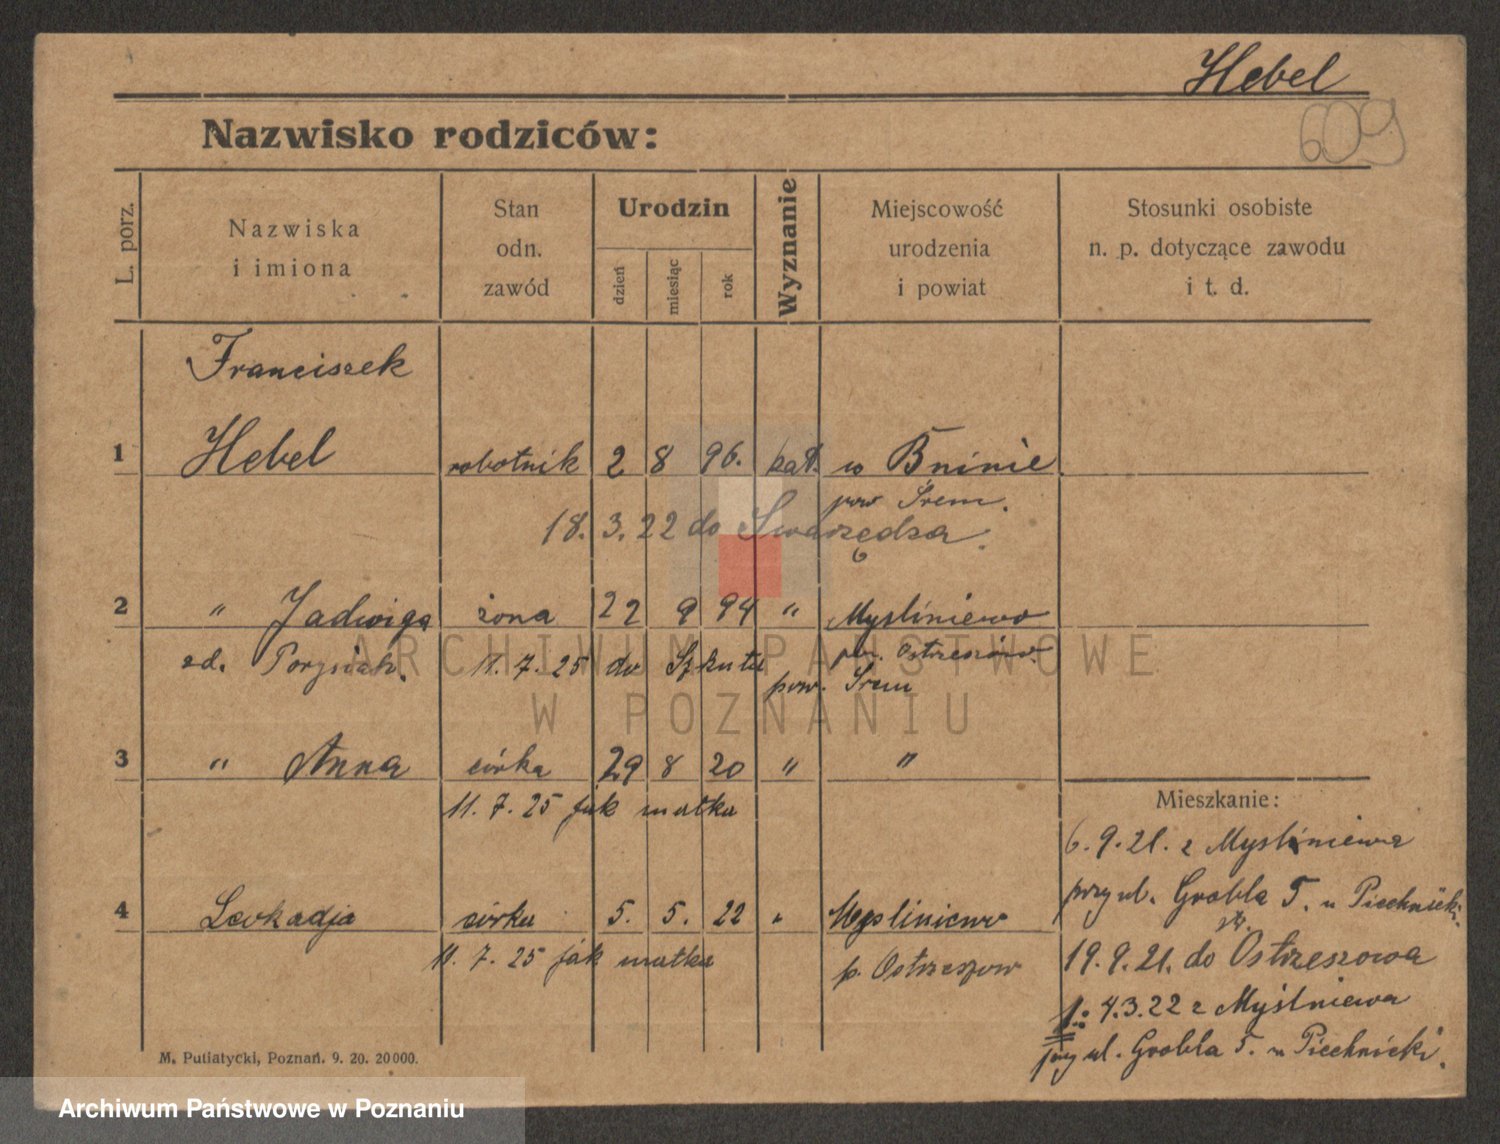 Hebel
609
Nazwisko rodziców:
L. porz.
Nazwiska
i imiona
Stan
odn.
zawód
Urodzin
dzień
miesiąc
rok
Wyznanie
Miejscowość
urodzenia
i powiat
Stosunki osobiste
n. p. dotyczące zawodu
i t. d.
Franciszek
1 Hebel robotnik 2 8 96. kat. w Bninie
pow Śrem.
18. 3. 22 do Swarzędza.
2 " Jadwiga żona 22 9 94 " Mysliniewo
zd. 11. 7. 25 do pow. Ostrzeszów
pow. Śrem
3 " Anna córka 29 8 20 " "
11. 7. 25 jak matka
4 Leokadja córka 5. 5. 22 " Mysliniewo
11. 7. 25 jak matka p. Ostrzeszow
Mieszkanie:
6. 9. 21. z Mysliniewa
przy ul. Grobla 5. u Piechnicki.
19. 9. 21. do Ostrzeszowa
4. 3. 22 z Myślniewa
przy ul. Grobla 5. u Piechnicki.
M. Putiatycki, Poznań. 9. 20. 20000.
ARCHIWUM PAŃSTWOWE
W POZNANIU
Archiwum Państwowe w Poznaniu